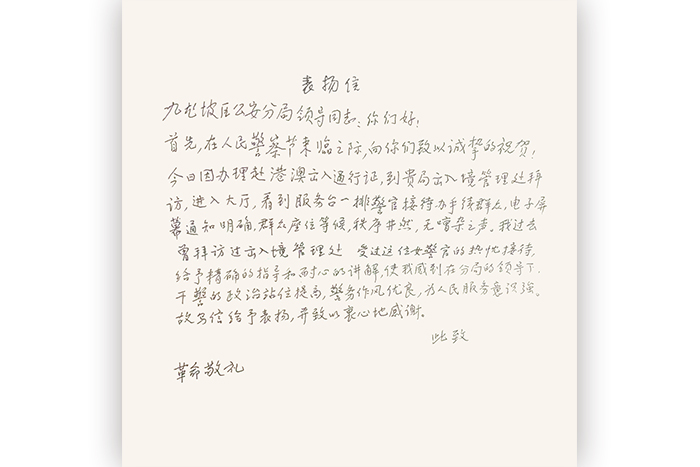 表扬信
九龙坡区公安分局领导同志:你们好!
首先,在人民警察节来临之际,向你们致以诚挚的祝贺!
今日因办理赴港澳出入通行证,到贵局出入境管理处拜
访,进入大厅,看到服务台一排警官接待办手续群众,电子屏
幕通知明确,群众座位等候,秩序井然,无嘈杂之声。我过去
曾拜访过出入境管理处 受过这位女警官的热忱接待,
给予精确的指导和耐心的讲解,使我感到在分局的领导下,
干警的政治站位提高,警务作风优良,为人民服务意识强。
故写信给予表扬,并致以衷心地感谢。
此致
革命敬礼